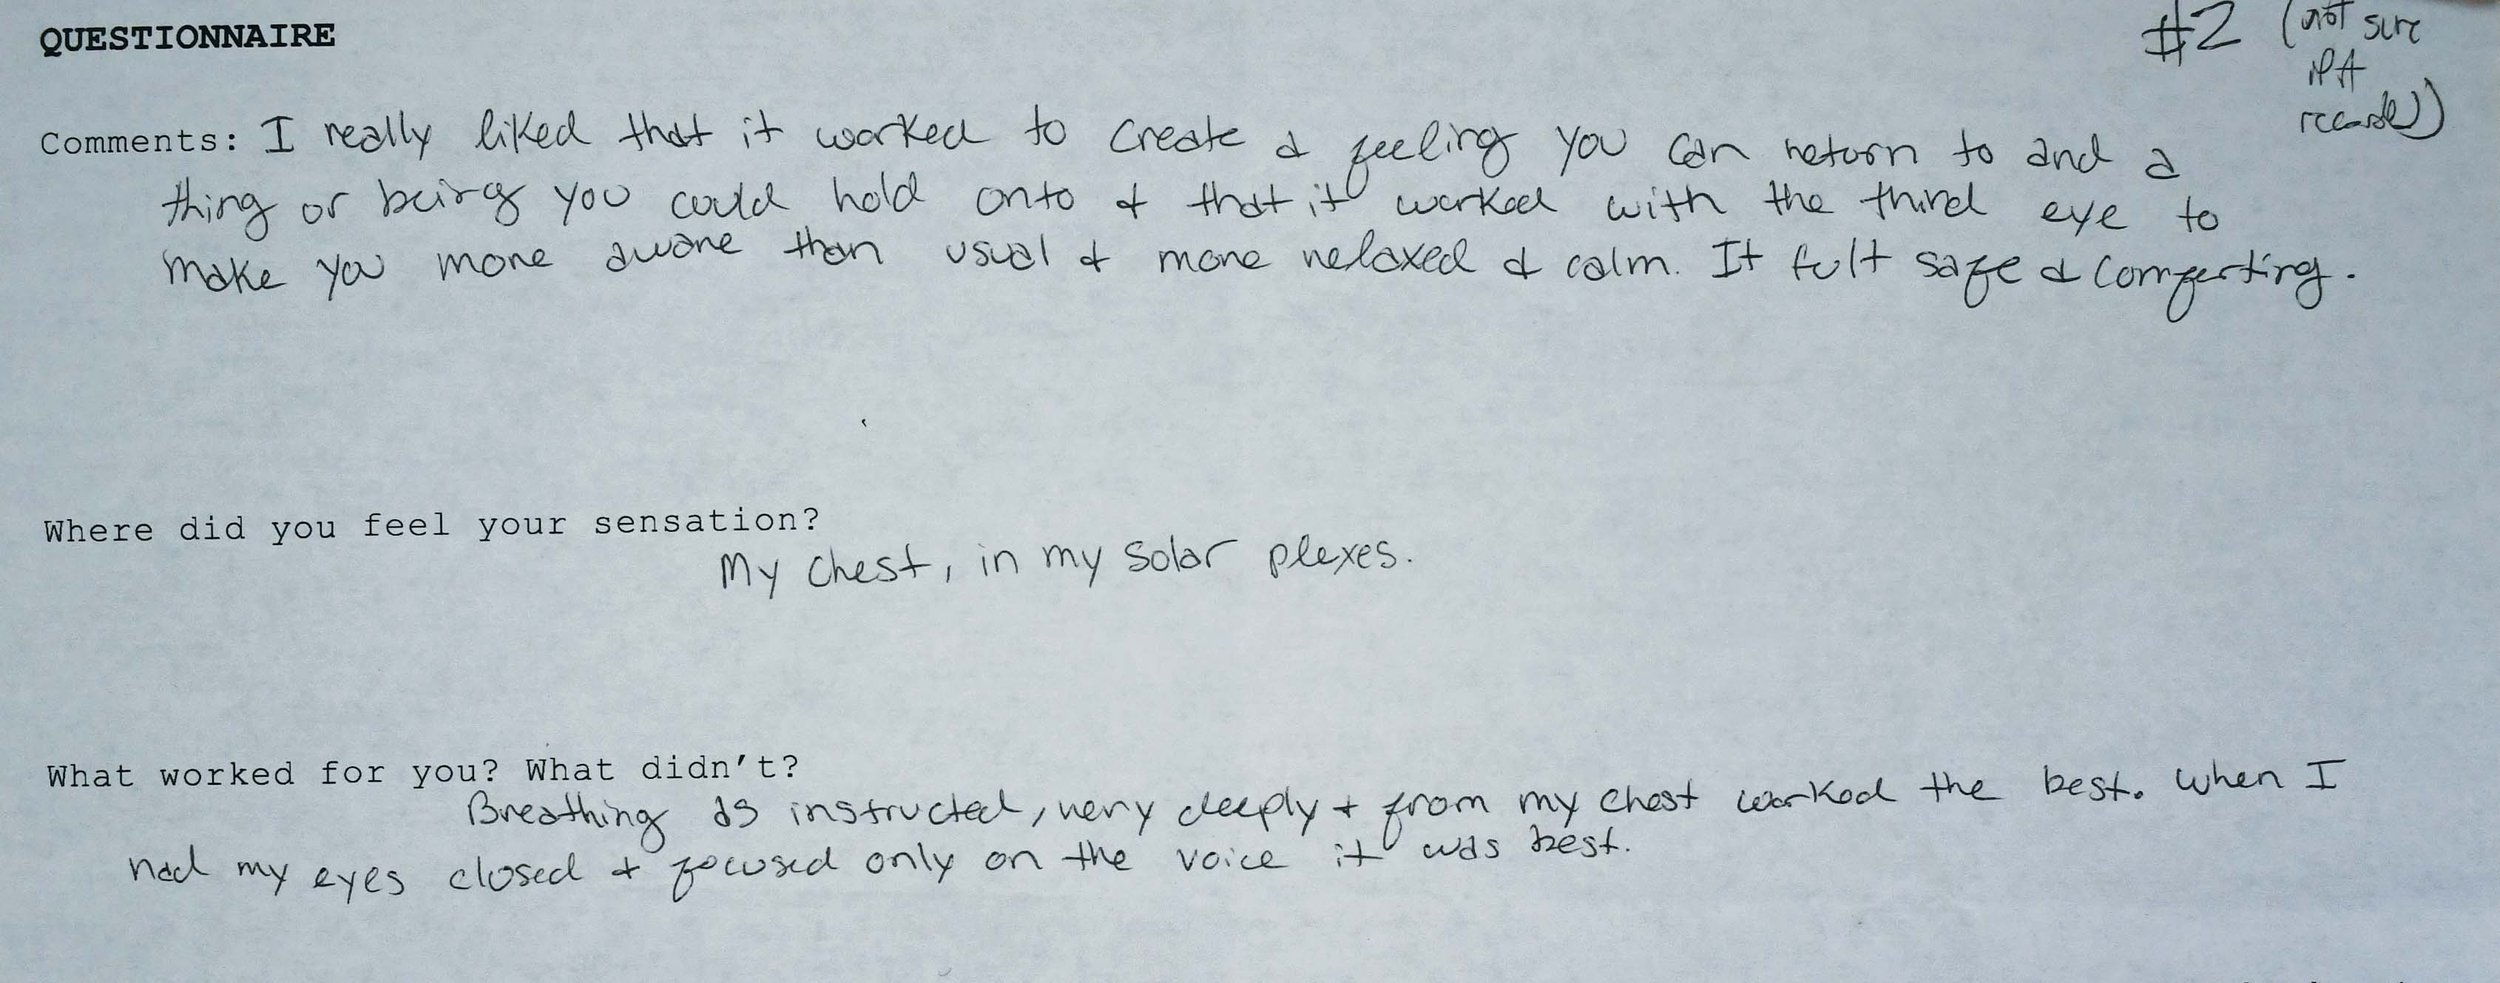 QUESTIONNAIRE
#2 (not sure
if it
recorded)
Comments: I really liked that it worked to create a feeling you can return to and a
thing or being you could hold onto & that it worked with the third eye to
make you more aware than usual & more relaxed & calm. It felt safe & comforting.
Where did you feel your sensation?
My chest, in my solar plexes.
What worked for you? What didn't?
Breathing as instructed, very deeply & from my chest worked the best. When I
had my eyes closed & focused only on the voice it was best.